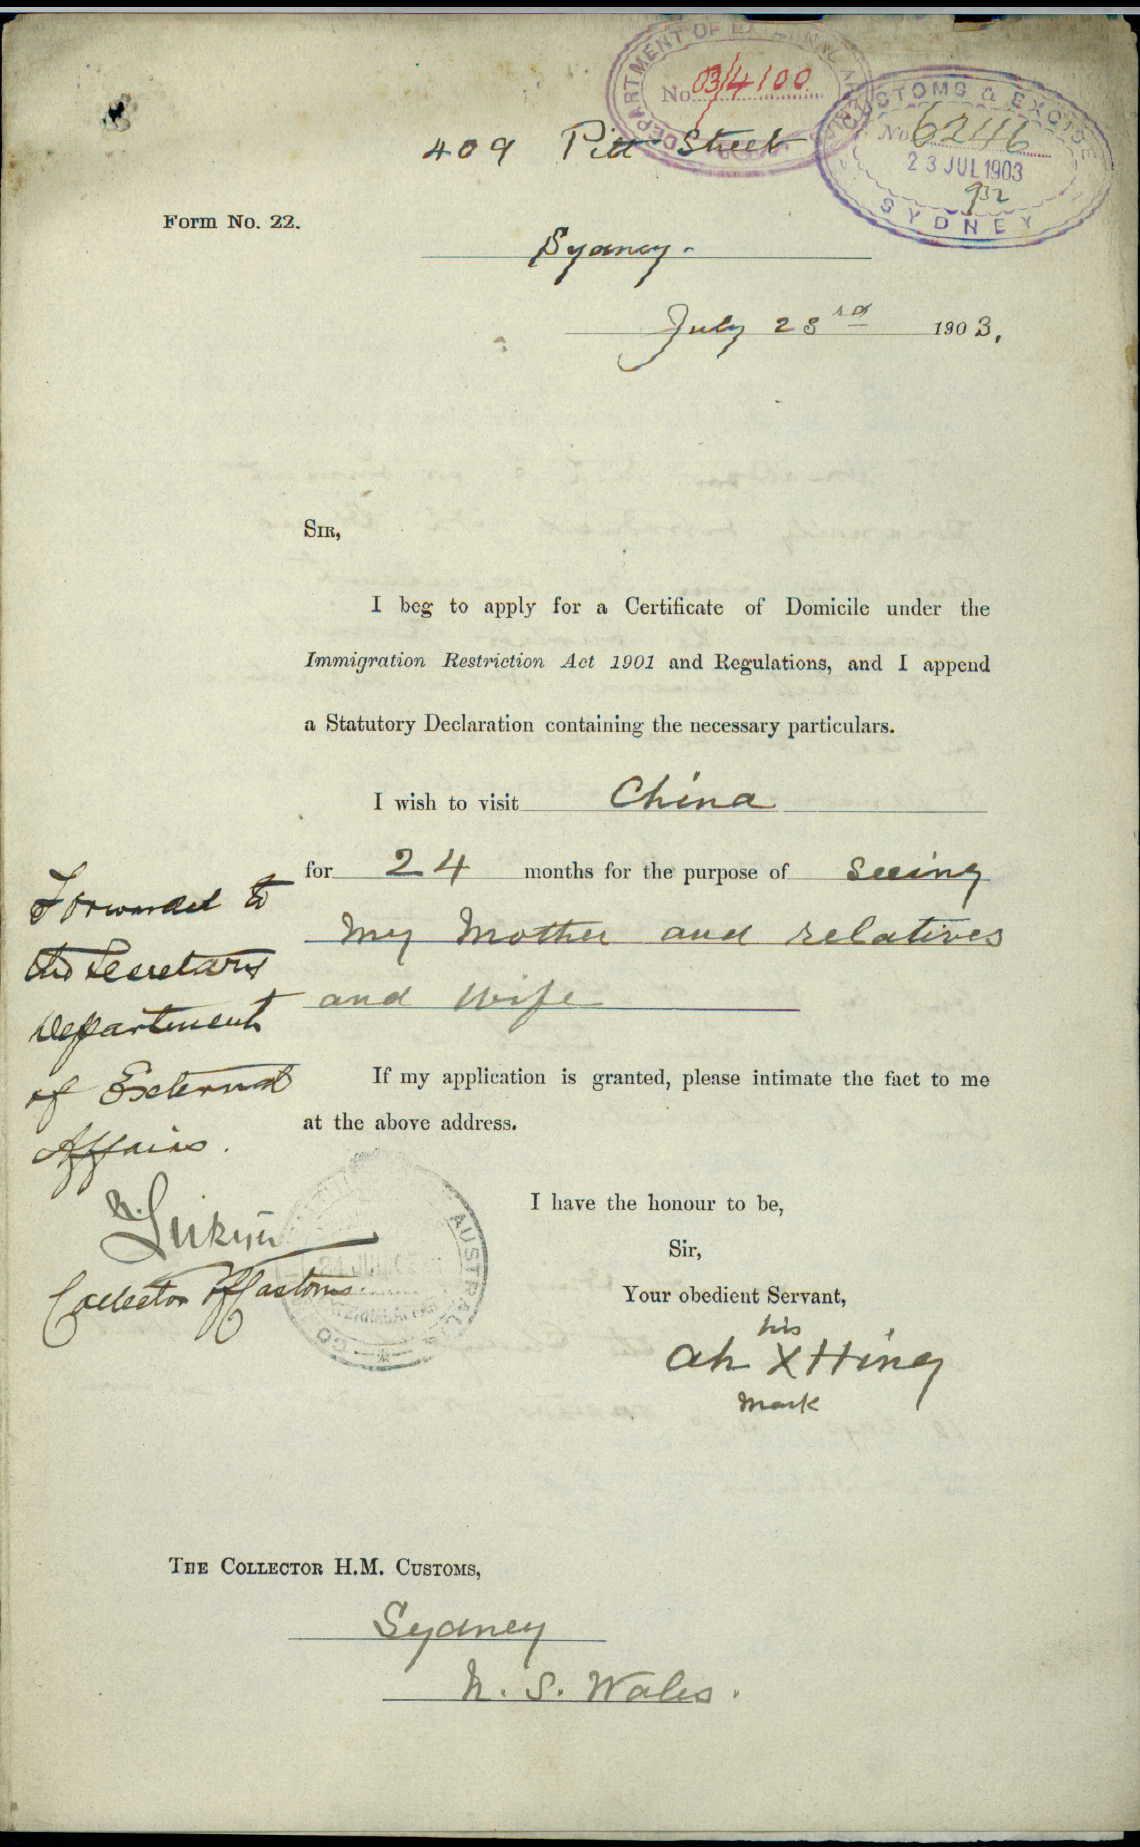 DEPARTMENT OF EXTERNAL AFFAIRS
No 03/4100
CUSTOMS & EXCISE
No 6246
23 JUL 1903
SYDNEY
409 Pitt Street
Form No. 22.
Sydney.
July 23rd 1903,
SIR,
I beg to apply for a Certificate of Domicile under the
Immigration Restriction Act 1901 and Regulations, and I append
a Statutory Declaration containing the necessary particulars.
I wish to visit China
for 24 months for the purpose of seeing
my Mother and relatives
and Wife
Forwarded to
the Secretary
Department
of External
Affairs.
Collector of Customs.
AUSTRA
If my application is granted, please intimate the fact to me
at the above address.
I have the honour to be,
Sir,
Your obedient Servant,
his
Ah X Hing
mark
THE COLLECTOR H.M. CUSTOMS,
Sydney
N. S. Wales.